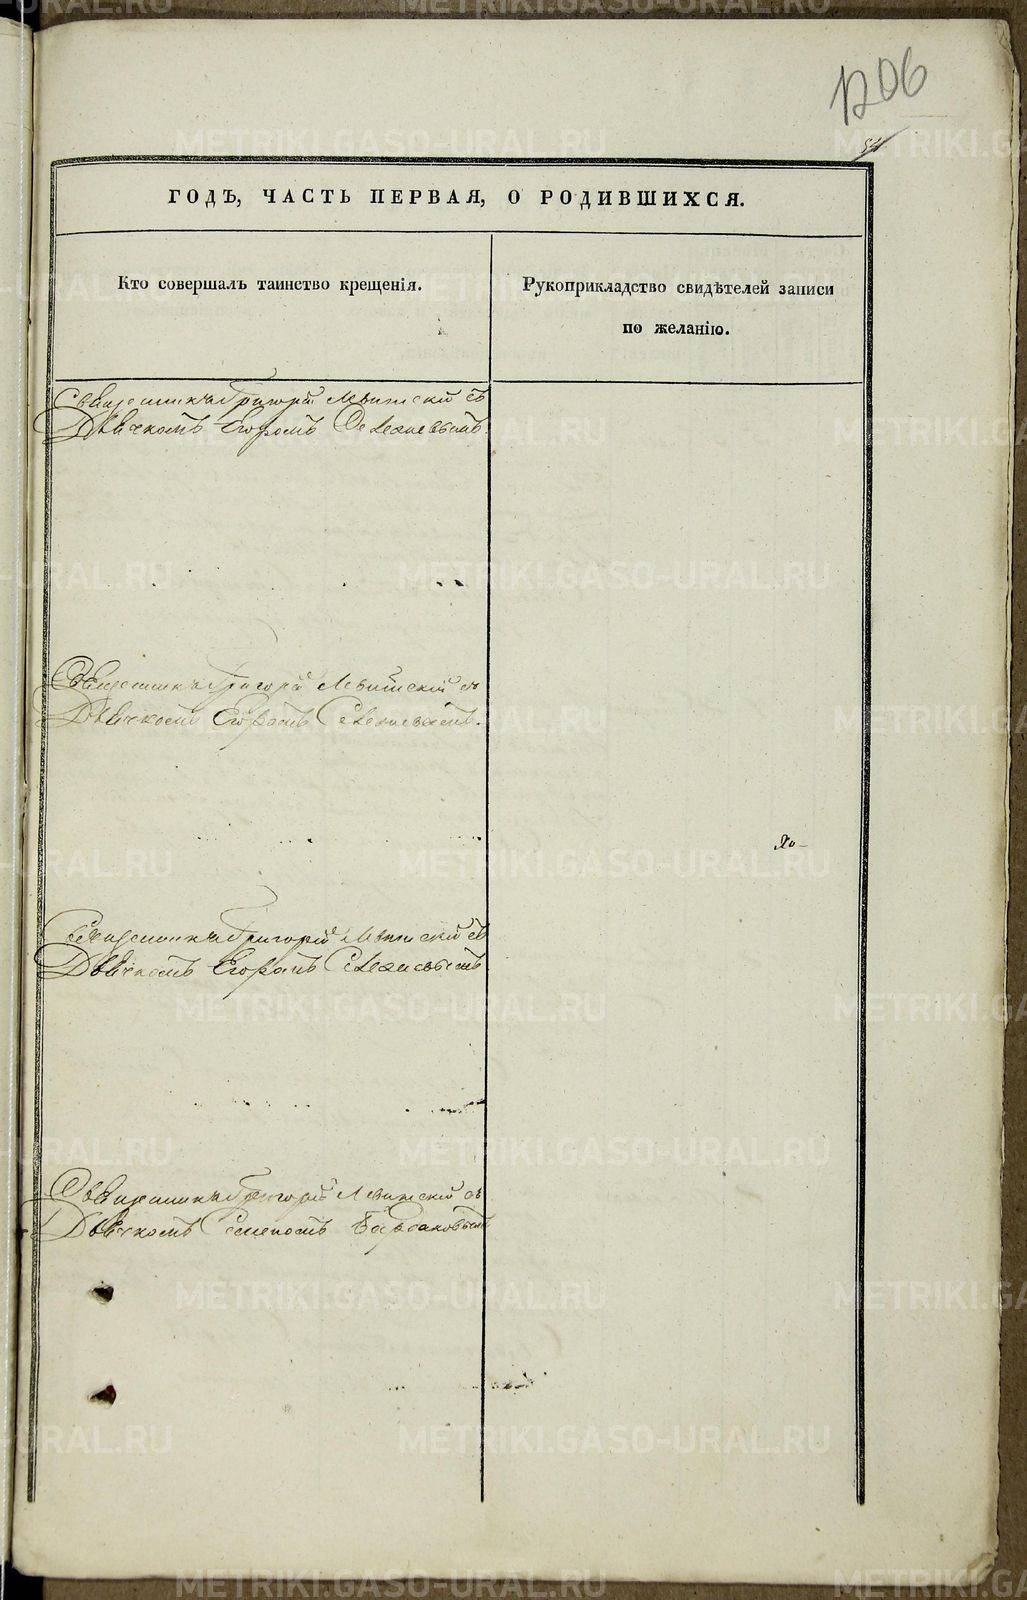 1206
ГОДЪ, ЧАСТЬ ПЕРВАЯ, О РОДИВШИХСЯ.
Кто совершалъ таинство крещенія.
Рукоприкладство свидѣтелей записи
по желанію.
Священникъ Григорій Левитскій съ
Дьячкомъ Егоромъ Селехневымъ.
Священникъ Григорій Левитскій съ
Дьячкомъ Егоромъ Селехневымъ.
Священникъ Григорій Левитскій съ
Дьячкомъ Егоромъ Селехневымъ
Священникъ Григорій Левитскій съ
Дьячкомъ Семеномъ Барсаковымъ
METRIKI.GASO-URAL.RU